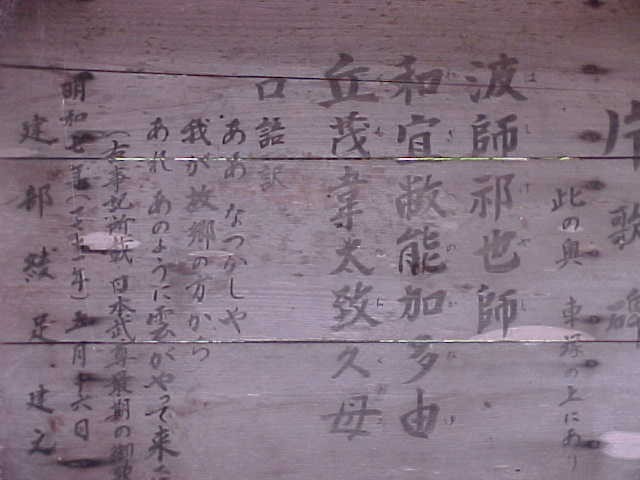 片歌碑
此の奥 車塚の上にあり
波師祁也師
和宜敝能加多由
丘茂韋太致久母
口語訳
ああ なつかしや
我が故郷の方から
あれ あのように雲がやって来
(古事記所載 日本武尊最期の御歌
明和七年 五月十六日
建部綾足 建之